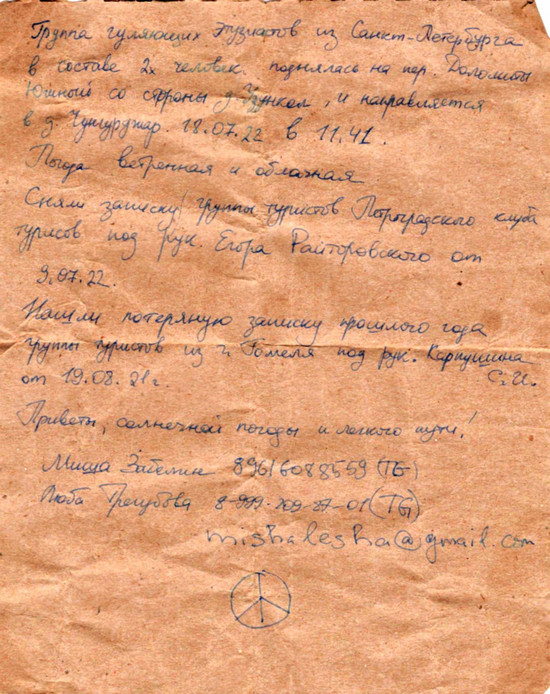 Группа гуляющих энтузиастов из Санкт-Петербурга
в составе 2х человек. поднялась на пер. Доломиты
Южный со стороны д. Узункол, и направляется
в д. Чунгурджар. 18.07.22 в 11.41.
Погода ветренная и облачная
Сняли записку группы туристов Петроградского клуба
туристов под рук. Егора Райторовского от
9.07.22.
Нашли потеряную записку прошлого года
группы туристов из г. Гомеля под рук. Карпушина
от 19.08.21г. С.И.
Приветы, солнечной погоды и легкого пути!
Миша 89616088559 (TG)
Люба Трегубова 8-999-209-37-01 (TG)
mishalesha@gmail.com